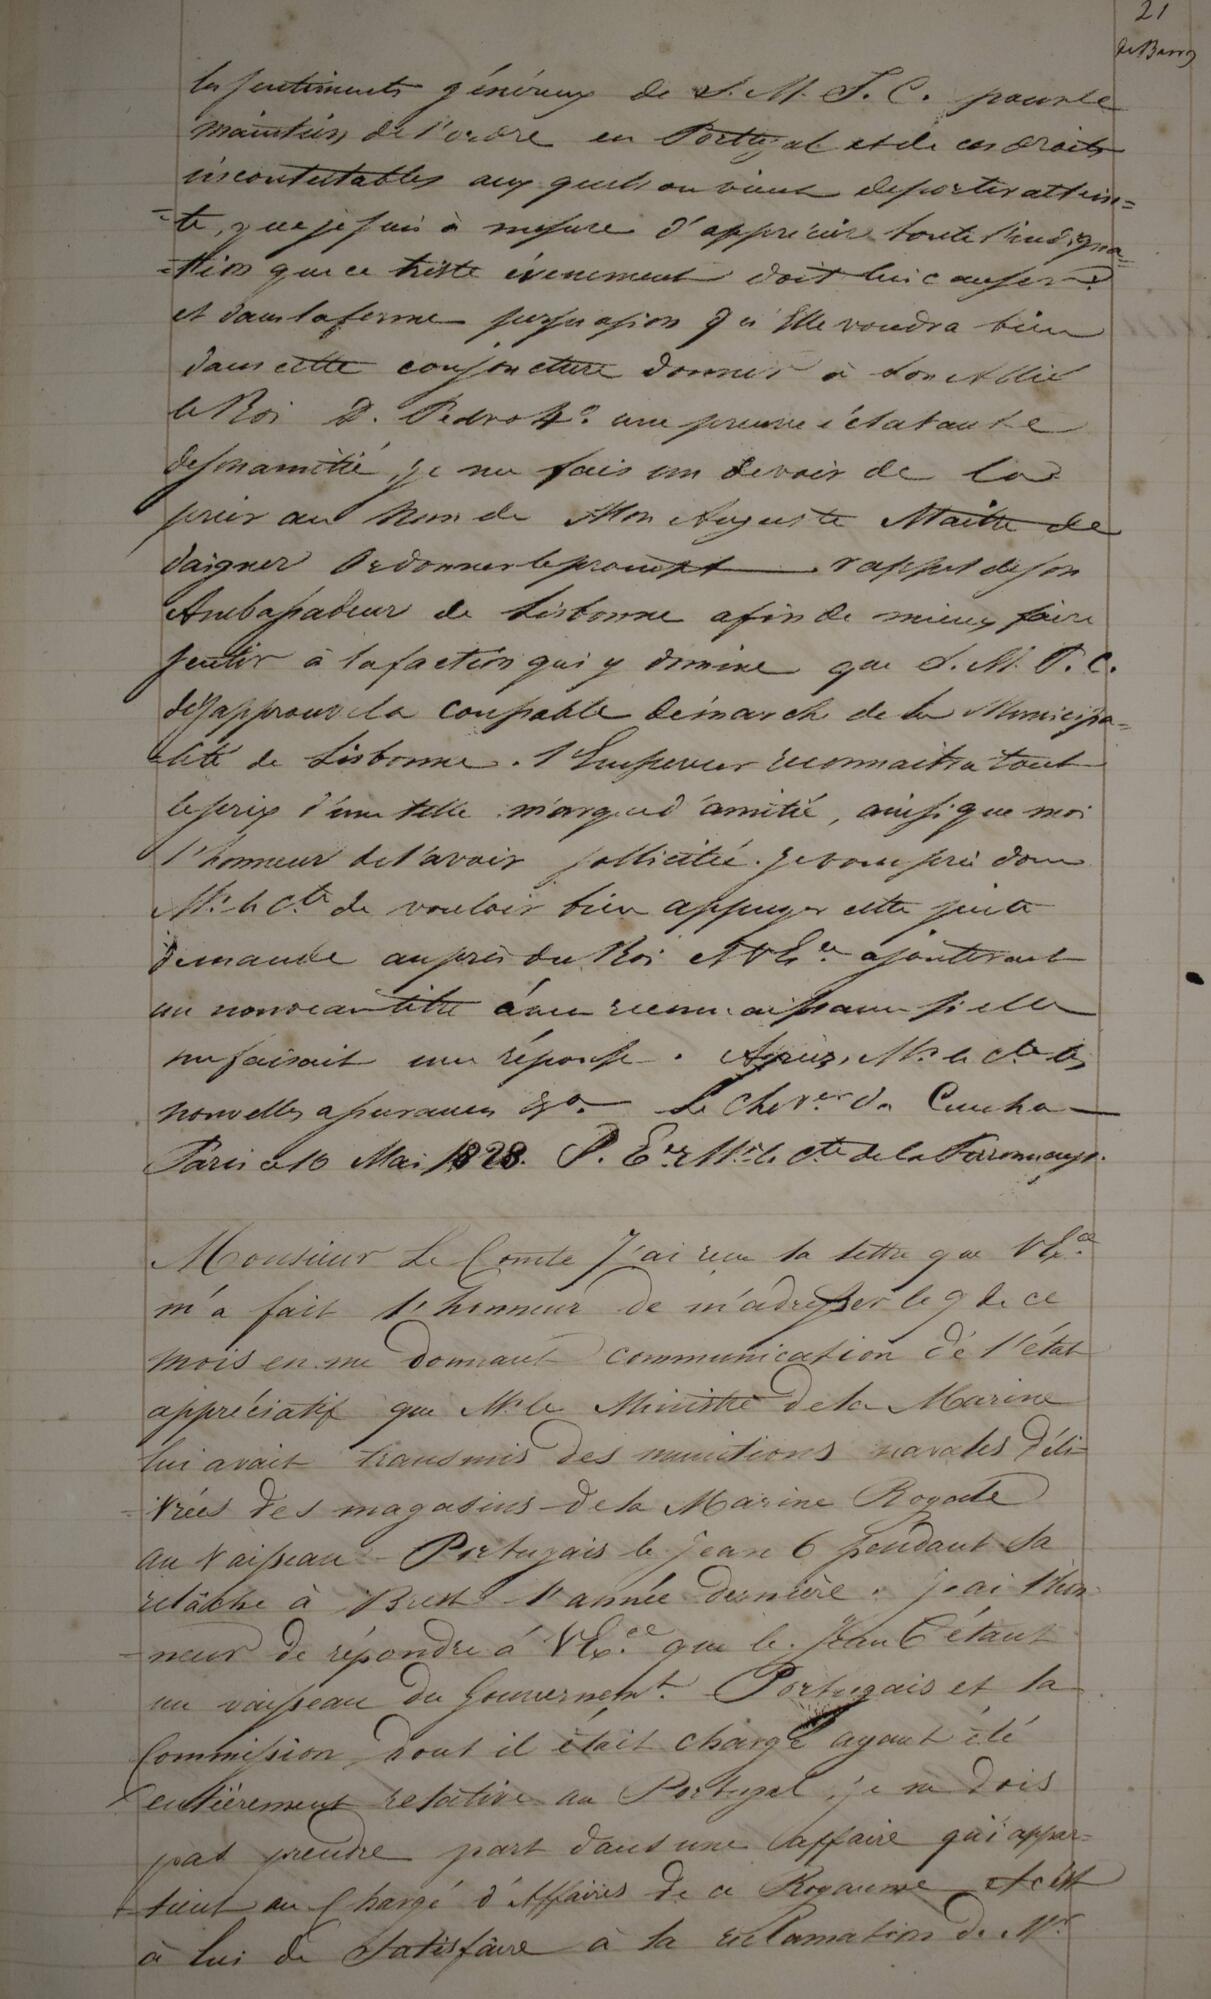 21
de Barros
les sentiments généreux de S. M. T. C. pour le
maintien de l'ordre en Portugal et de ces droits
incontestables aux quels on vient de porter attein=
=te, que je suis à mesure d'apprécier toute l'indigna=
=tion que ce triste évenement doit lui causer
et dans la ferme persuasion qu'Elle voudra bien
dans cette conjoncture donner à son Allié
le Roi D. Pedro 4º une preuve éclatante
de son amitié, je me fais un devoir de la
prier au Nom de Mon Auguste Maitre de
daigner Ordonner le prompt rappel de son
Ambassadeur de Lisbonne afin de mieux faire
sentir à la faction qui y domine que S. M. T. C.
désapprouve la coupable démarche de la Municipa=
lité de Lisbonne. l'Empereur reconnaitra tout
le prix d'une telle marque d'amitié, ainsi que moi
l'honneur de l'avoir sollicitée. je vous prie donc
Mr. le Cte de vouloir bien appuyer cette juste
demande auprès du Roi et V Ece ajouterait
un nouveau titre à ma reconnaissance si elle
me faisait une réponse. Agréez, Mr. le Cte les
nouvelles assurances &a. Le Chever da Cunha
Paris ce 10 Mai 1828. S. Ece Mr. le Cte de la Ferronnays.
Monsieur Le Comte J'ai reçu la lettre que V Exce
m'a fait l'honneur de m'adresser le 9 de ce
mois en me donnant communication de l'état
appréciatif que Mr. le Ministre de la Marine
lui avait transmis des munitions navales déli
=vrées des magasins de la Marine Royale
au Vaisseau Portugais le Jean 6 pendant sa
relâche à Brest l'année dernière. J'ai l'hon
=neur de répondre à V Exce que le Jean 6 étant
un vaisseau du Gouvernemt. Portugais et la
Commission dont il était chargé ayant été
entièrement relative au Portugal, je ne dois
pas prendre part dans une affaire qui appar=
tient au Chargé d'Affaires de ce Royaume et c'est
à lui de satisfaire à la reclamation de Mr.